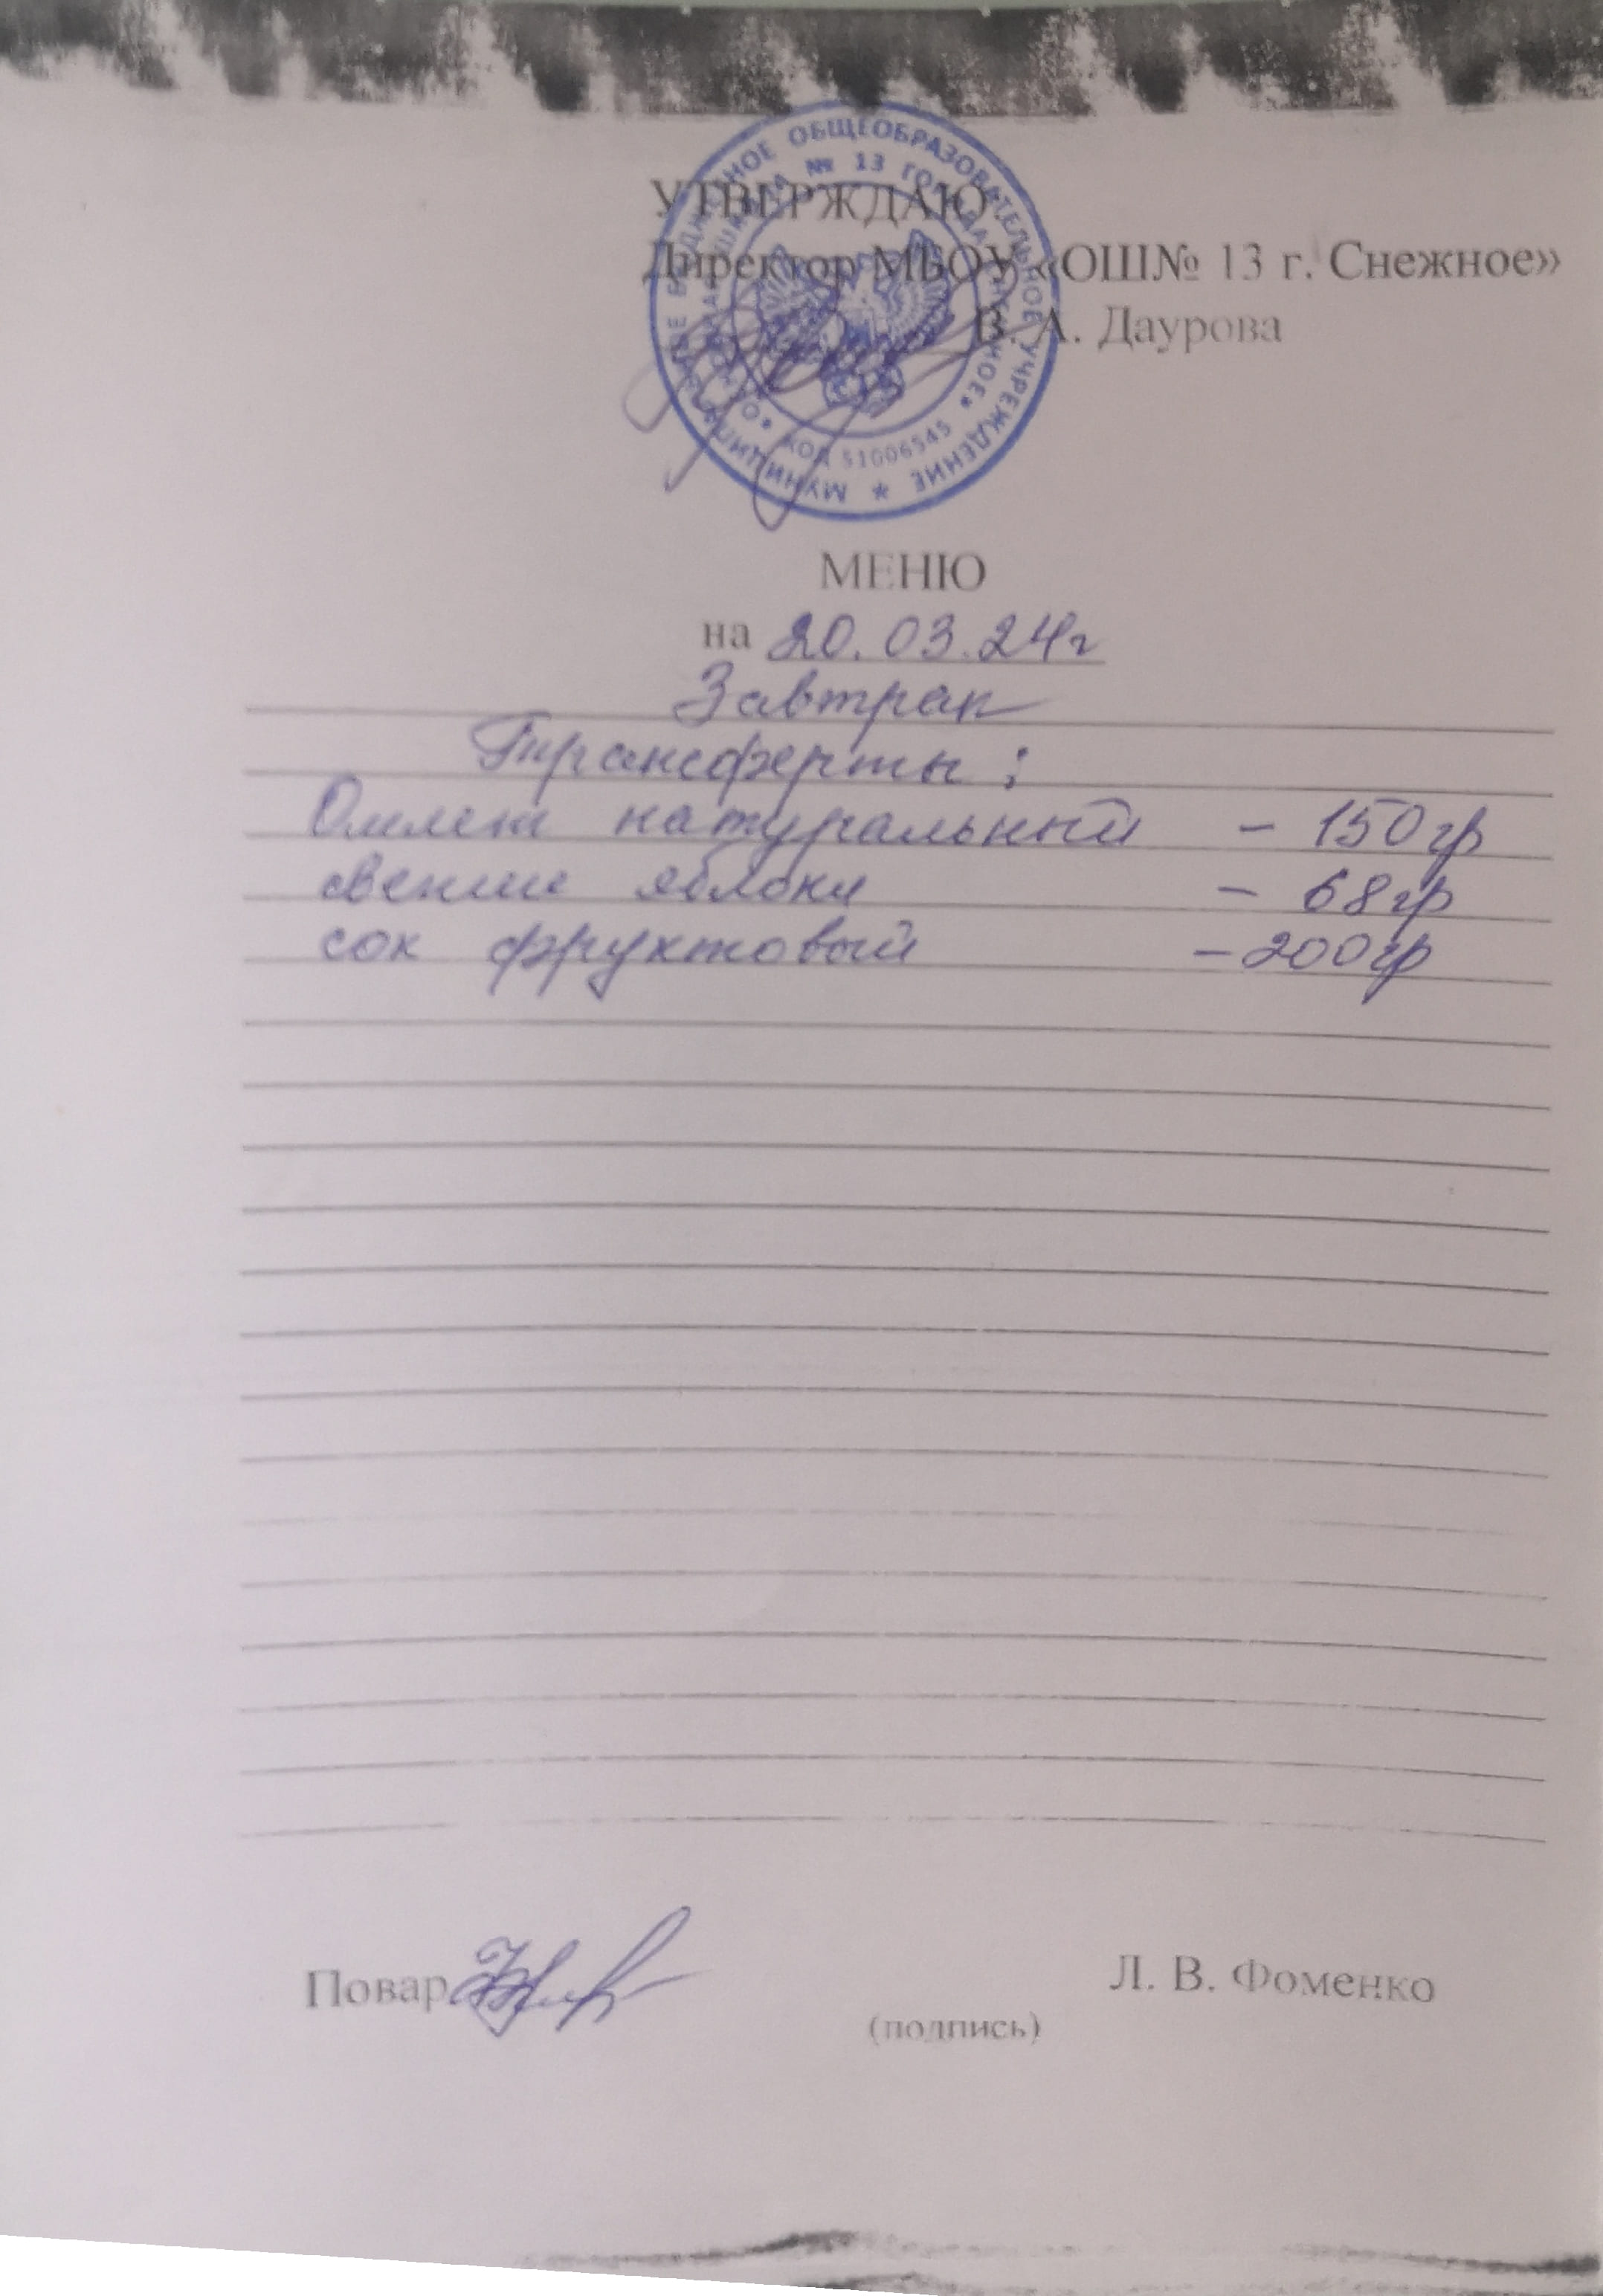 УТВЕРЖДАЮ
Директор МБОУ «ОШ№ 13 г. Снежное»
В. А. Даурова
МУНИЦИПАЛЬНОЕ БЮДЖЕТНОЕ ОБЩЕОБРАЗОВАТЕЛЬНОЕ УЧРЕЖДЕНИЕ *
ШКОЛА № 13 ГОРОДА СНЕЖНОЕ» * КОД 51006545 *
МЕНЮ
на 20.03.24г
Завтрак
Трансферты:
Омлет натуральный - 150гр
свежие яблоки - 68гр
сок фруктовый - 200гр
Повар Л. В. Фоменко
(подпись)